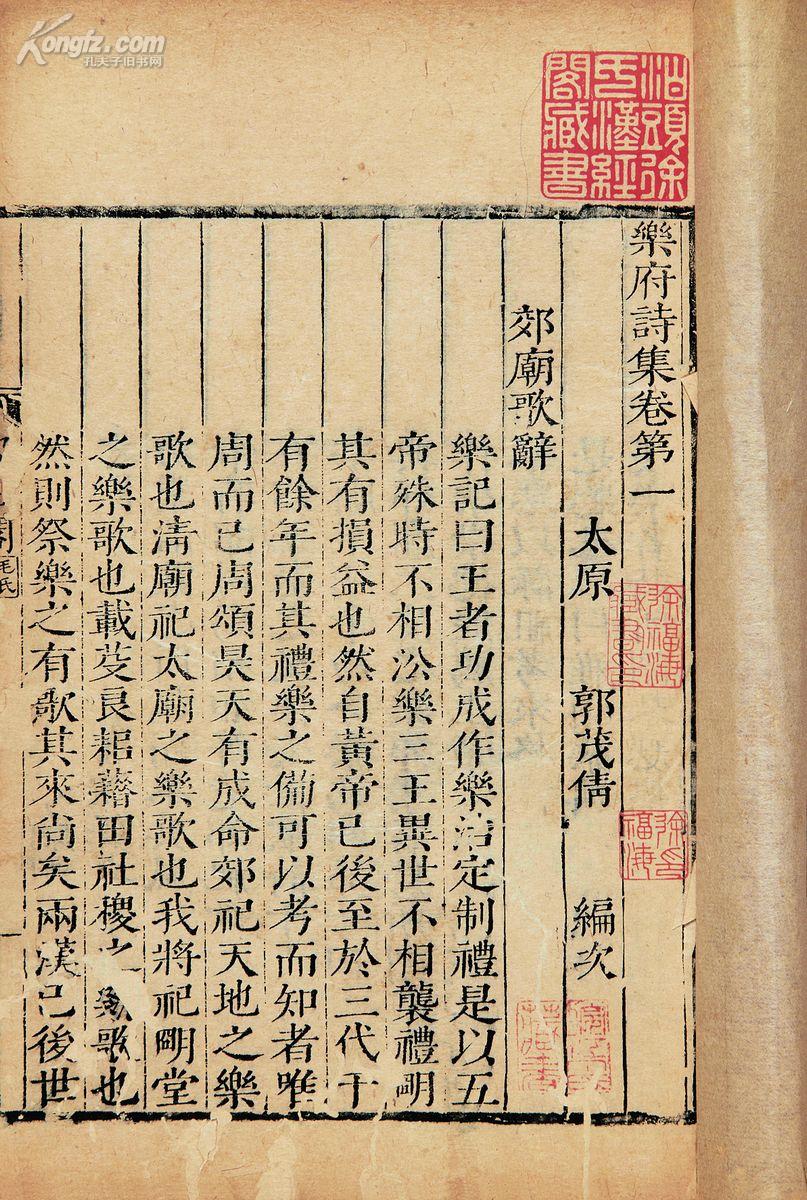 Kongfz.com
孔夫子旧书网
沿頭徐
氏漢經
閣藏書
樂府詩集卷第一
徐福海
藏書印
徐氏
福海
太原 郭茂倩 編次
郊廟歌辭
樂記曰王者功成作樂治定制禮是以五
帝殊時不相沿樂三王異世不相襲禮明
其有損益也然自黃帝已後至於三代千
有餘年而其禮樂之備可以考而知者唯
周而已周頌昊天有成命郊祀天地之樂
歌也淸廟祀太廟之樂歌也我將祀明堂
之樂歌也載芟良耜藉田社稷之樂歌也
然則祭樂之有歌其來尚矣兩漢已後世
閣
毛氏
一